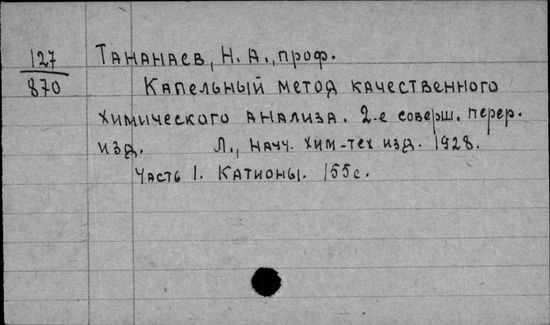 127
870
Тананаев, Н. А., проф.
Капельный метод качественного
химического анализа. 2-е соверш. перер.
изд. Л., научн. хим-тех изд. 1928.
Часть 1. Катионы. 155 с.